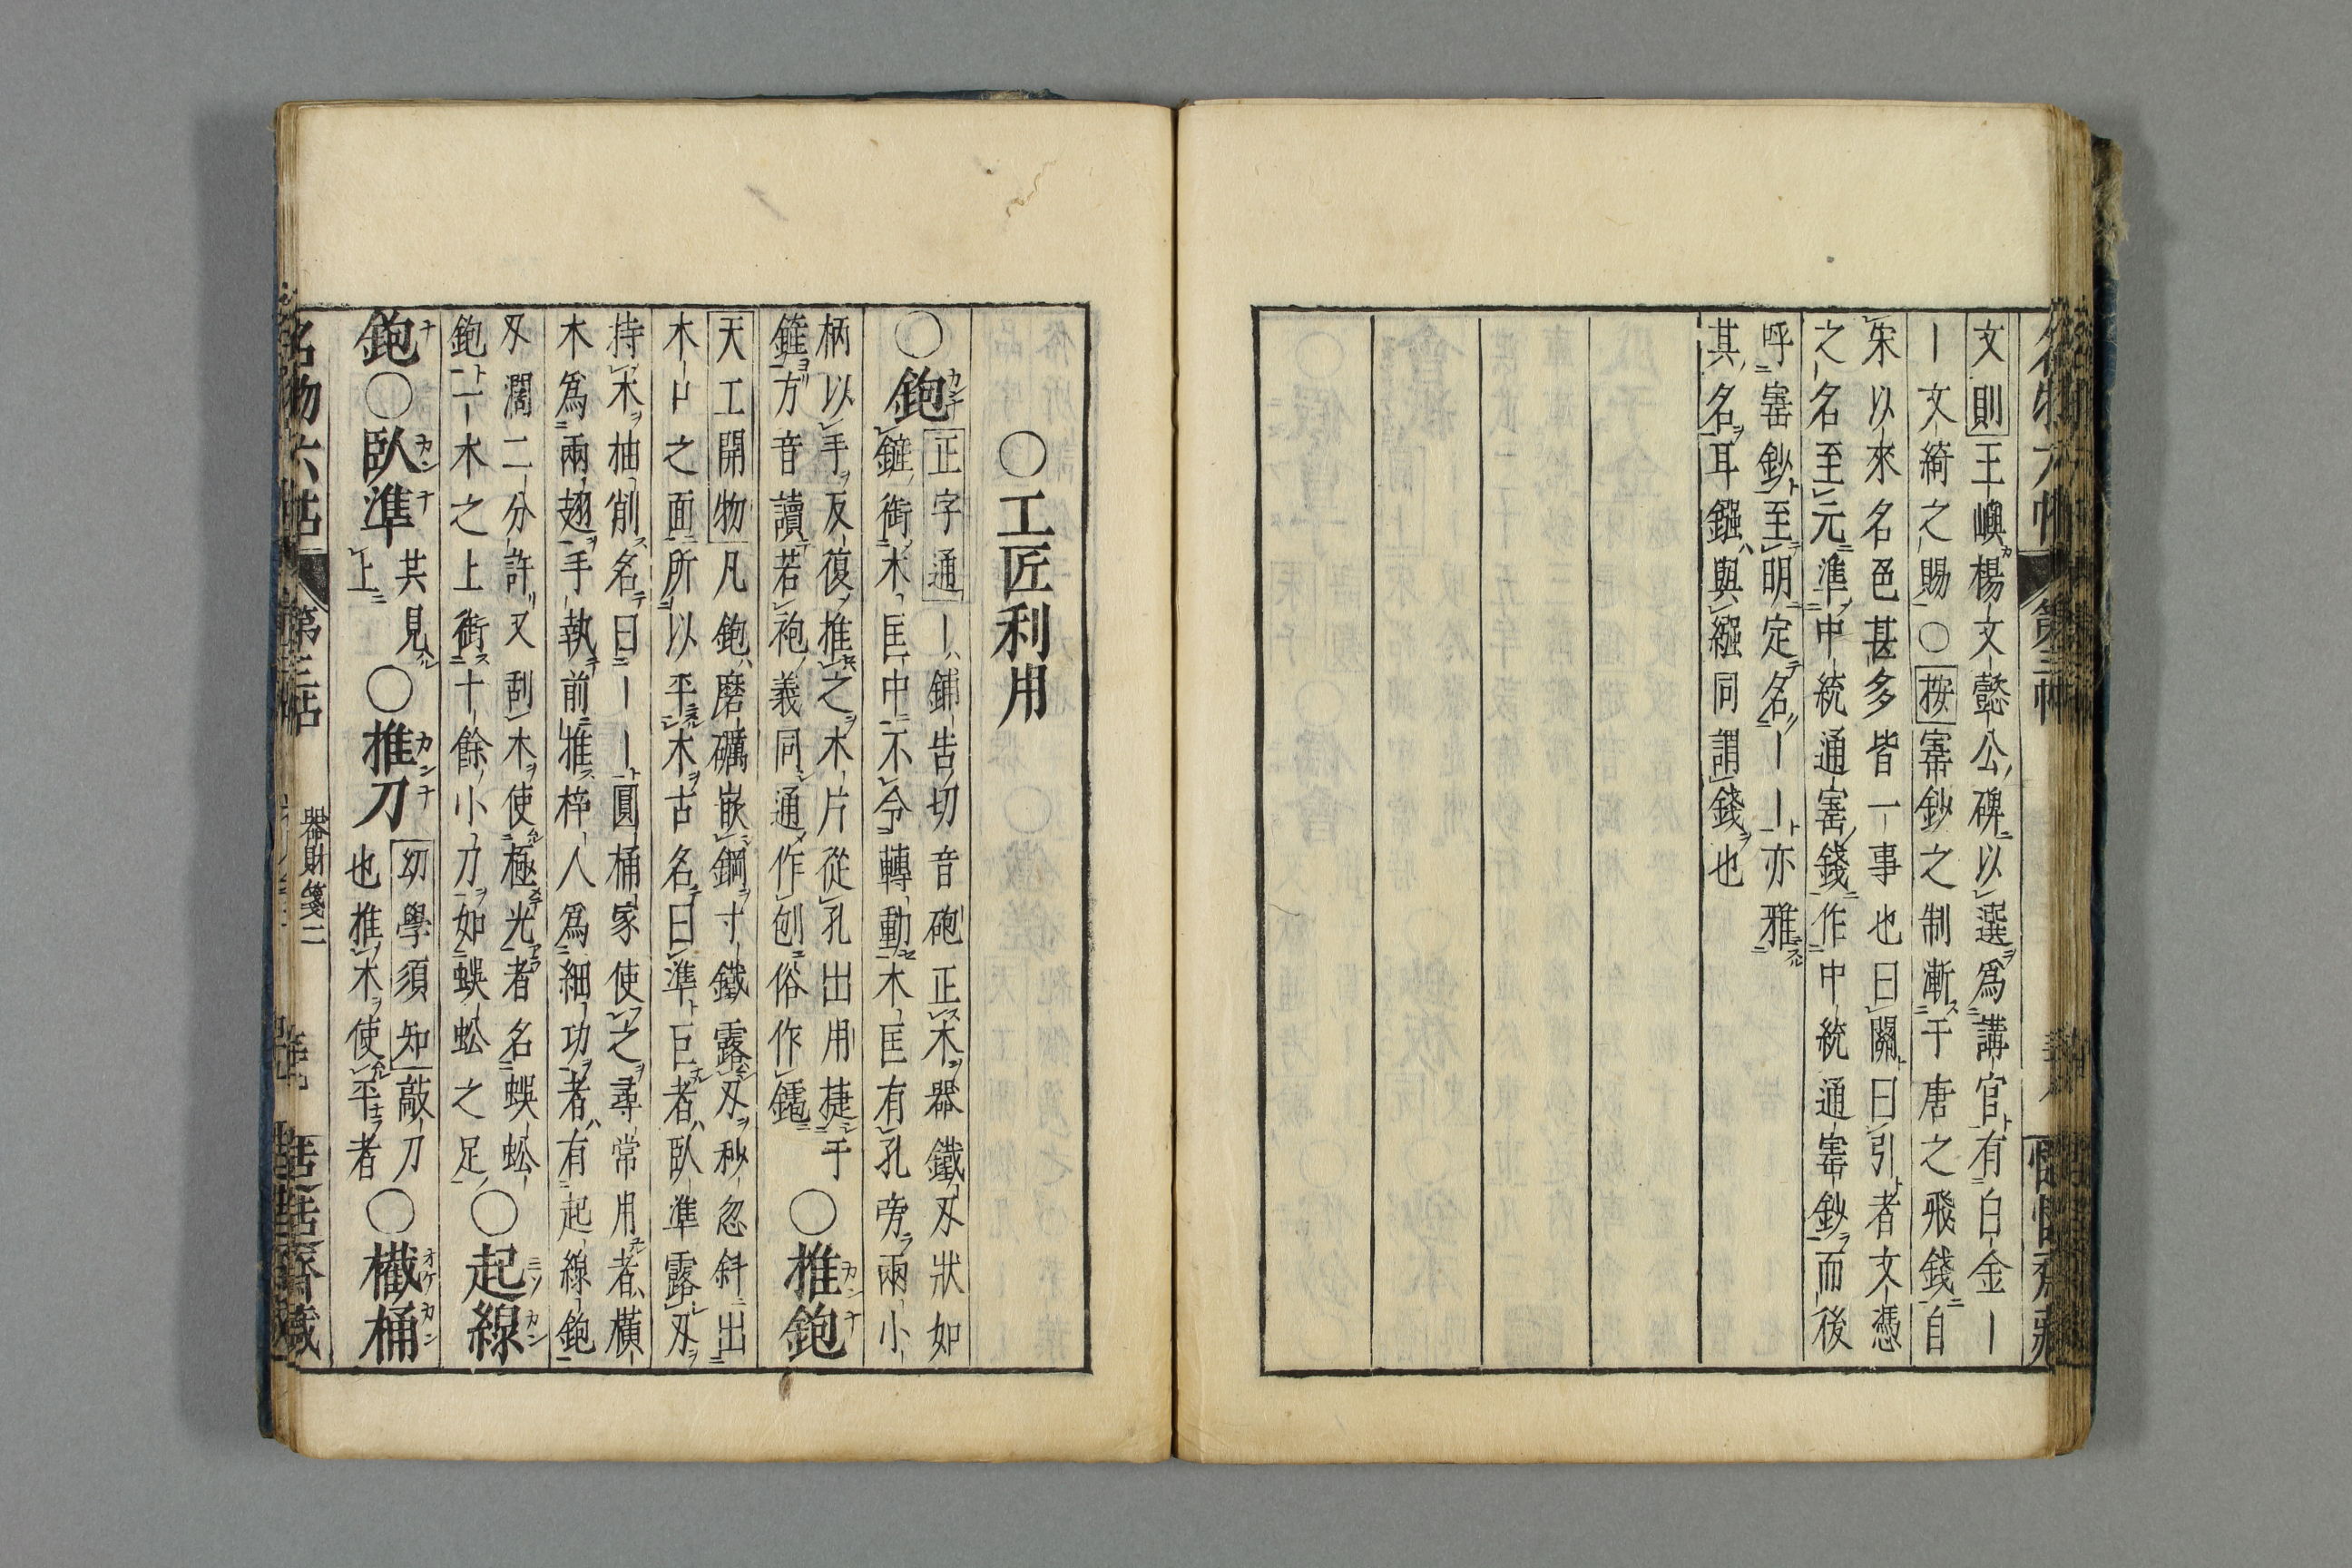 文則王嶼楊文懿公碑以選爲講官有白金〡
〡文綺之賜○按寚鈔之制漸于唐之飛錢自
宋以來名色甚多皆一事也曰關曰引者文憑
之名至元準中統通寚錢作中統通寚鈔而後
呼寚鈔至明定名〡〡亦雅
其名耳鏹與繦同謂錢也
○工匠利用
○鉋カンナ
正字通〡鋪告切音砲正木器鐵刄狀如
鏟銜木匡中不令轉動木匡有孔旁兩小
柄以手反復推之木片從孔出用捷于
鏟方音讀若袍義同通作刨俗作鐋
○推鉋カンナ
天工開物凡鉋磨礪嵌鋼寸鐵露刄秒忽斜出
木口之面所以平木古名曰準巨者臥準露刄
持木抽削名曰〡〡圓桶家使之尋常用者橫
木爲兩翅手執前推梓人爲細功者有起線鉋
刄濶二分許又刮木使極光者名蜈蚣
鉋一木之上銜十餘小刀如蜈蚣之足
○起線ニソカン
鉋ナ○臥準カンナ
其見
上
○推刀カンナ
㓜學須知敲刀
也推木使平者
○檝桶オケカン
名物六帖 第三帖 器財箋二